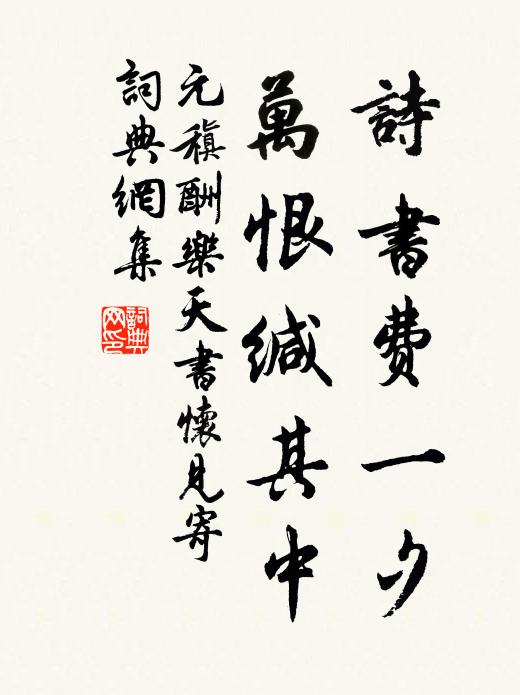 詩書費一夕
萬恨緘其中
元稹酬樂天書懷見寄
詞典網集
詞典网印